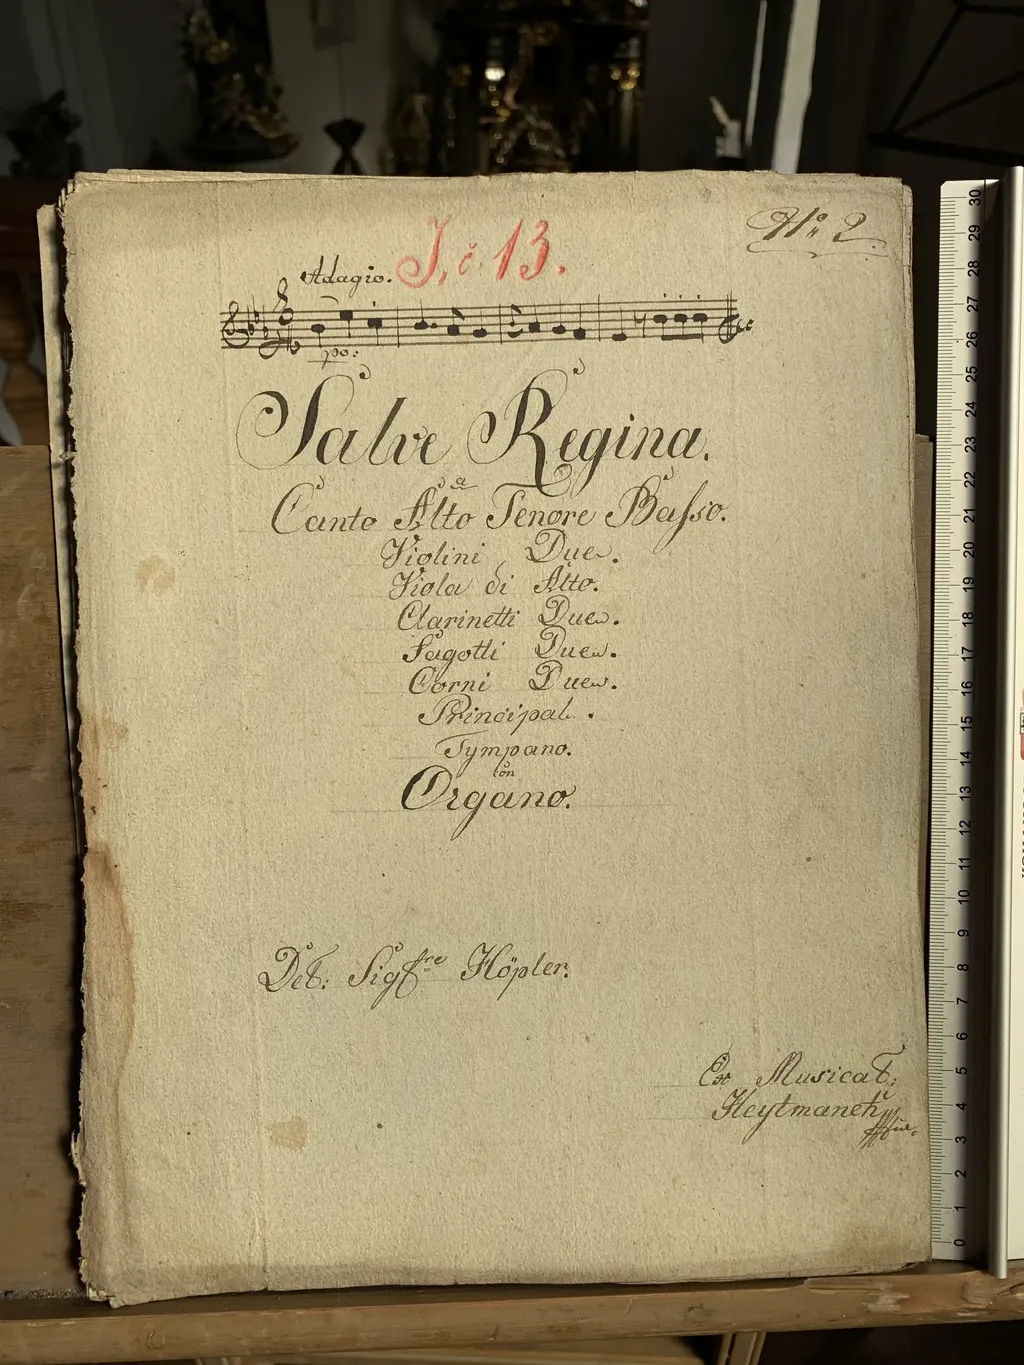 No 2.
J. č. 13.
Adagio.
po:
Salve Regina.
a
Canto Alto Tenore Basso.
Violini Due.
Viola di Alto.
Clarinetti Due.
Fagotti Due.
Corni Due.
Principal.
Tympano.
con
Organo.
Del: Sigre Höpler.
Ex Musical:
Heytmanek
30
29
28
27
26
25
24
23
22
21
20
19
18
17
16
15
14
13
12
11
10
9
8
7
6
5
4
3
2
1
0